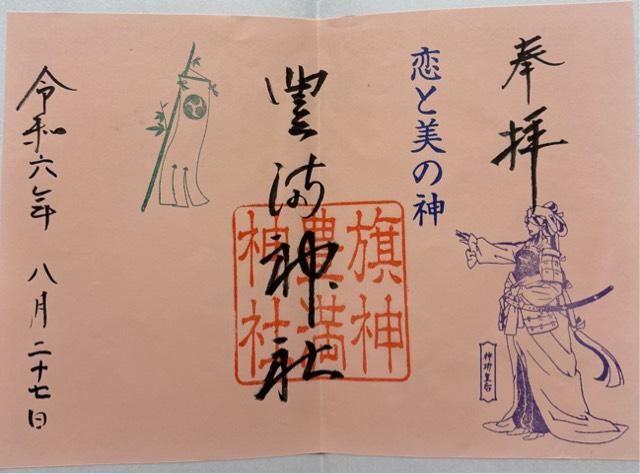 奉拝
恋と美の神
神功皇后
豊満神社
旗神
豊満
神社
令和六年 八月二十七日